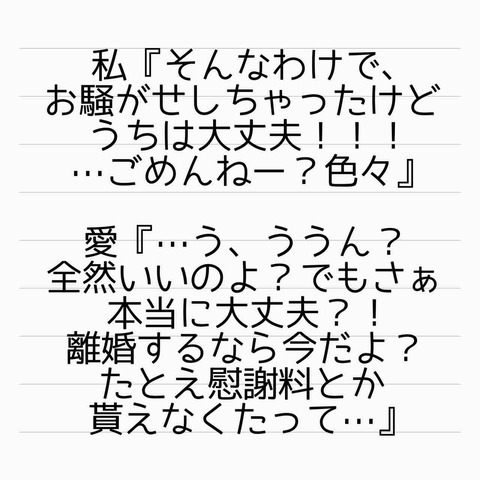 私『そんなわけで、
お騒がせしちゃったけど
うちは大丈夫！！！
…ごめんねー？色々』
愛『…う、ううん？
全然いいのよ？でもさぁ
本当に大丈夫？！
離婚するなら今だよ？
たとえ慰謝料とか
貰えなくたって…』